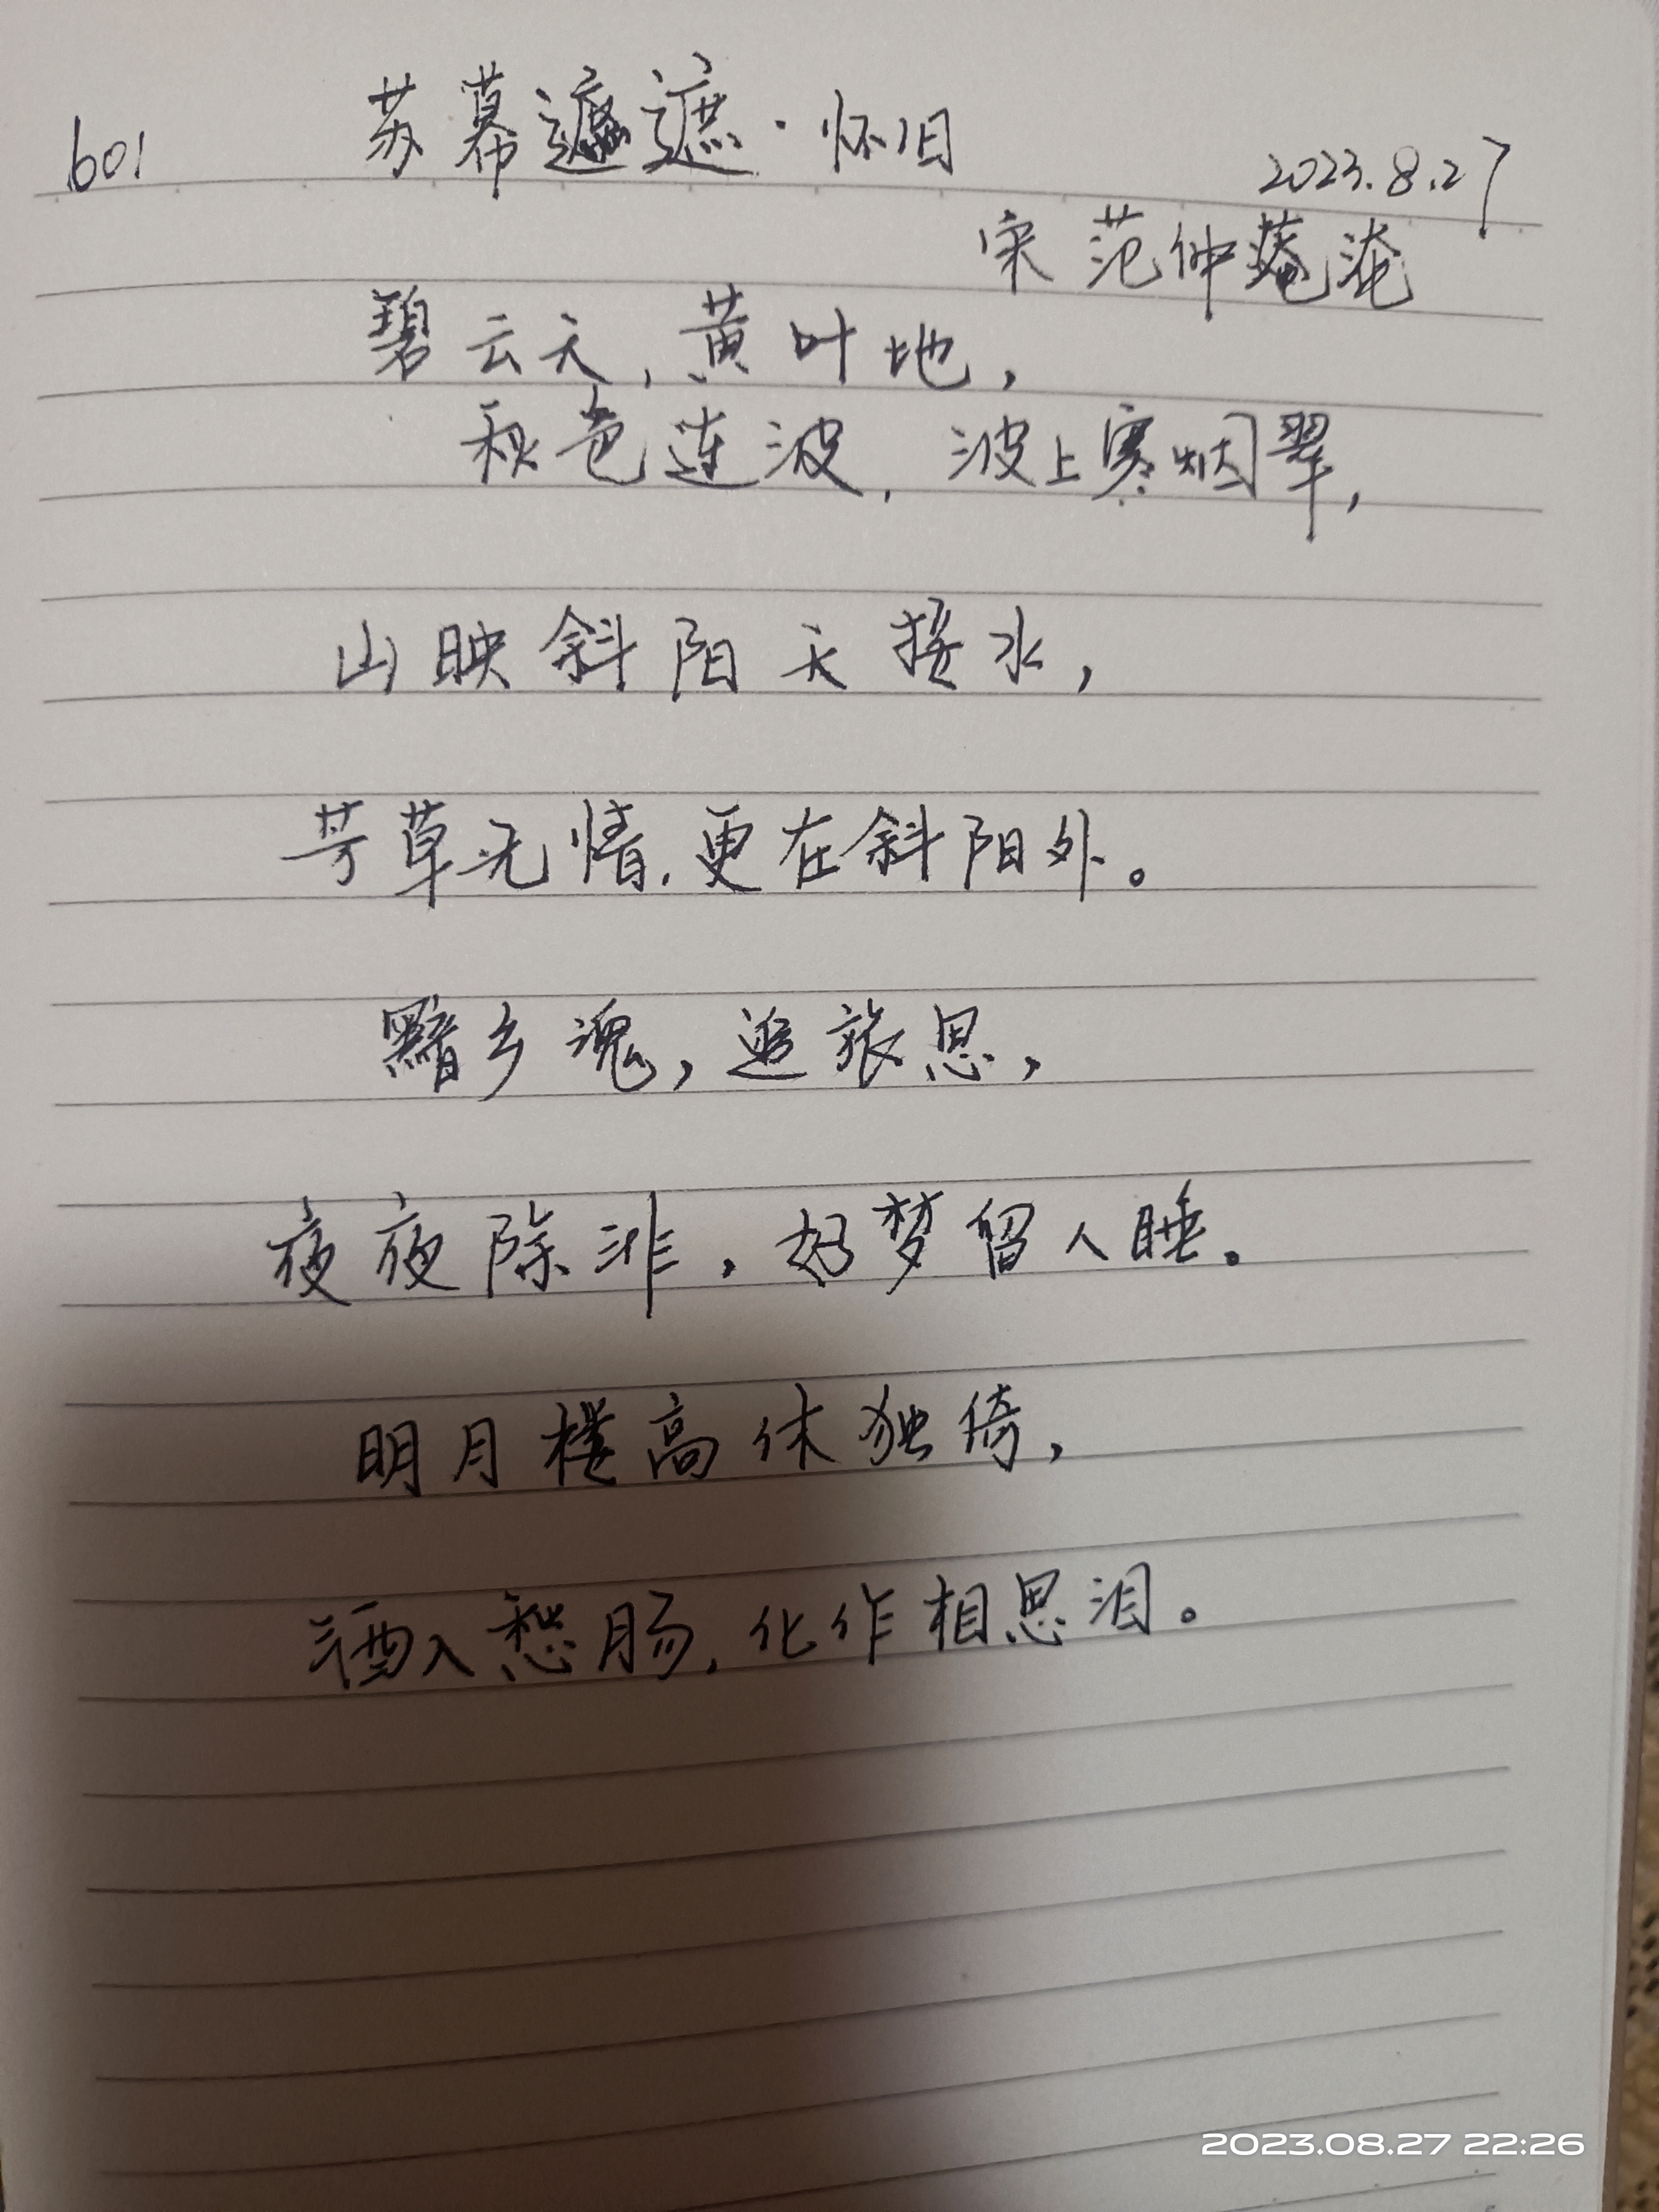 601 苏幕遮遮·怀旧 2023.8.27
宋 范仲淹
碧云天,黄叶地,
秋色连波, 波上寒烟翠,
山映斜阳天接水,
芳草无情,更在斜阳外。
黯乡魂,追旅思,
夜夜除非,好梦留人睡。
明月楼高休独倚,
酒入愁肠,化作相思泪。
2023.08.27 22:26